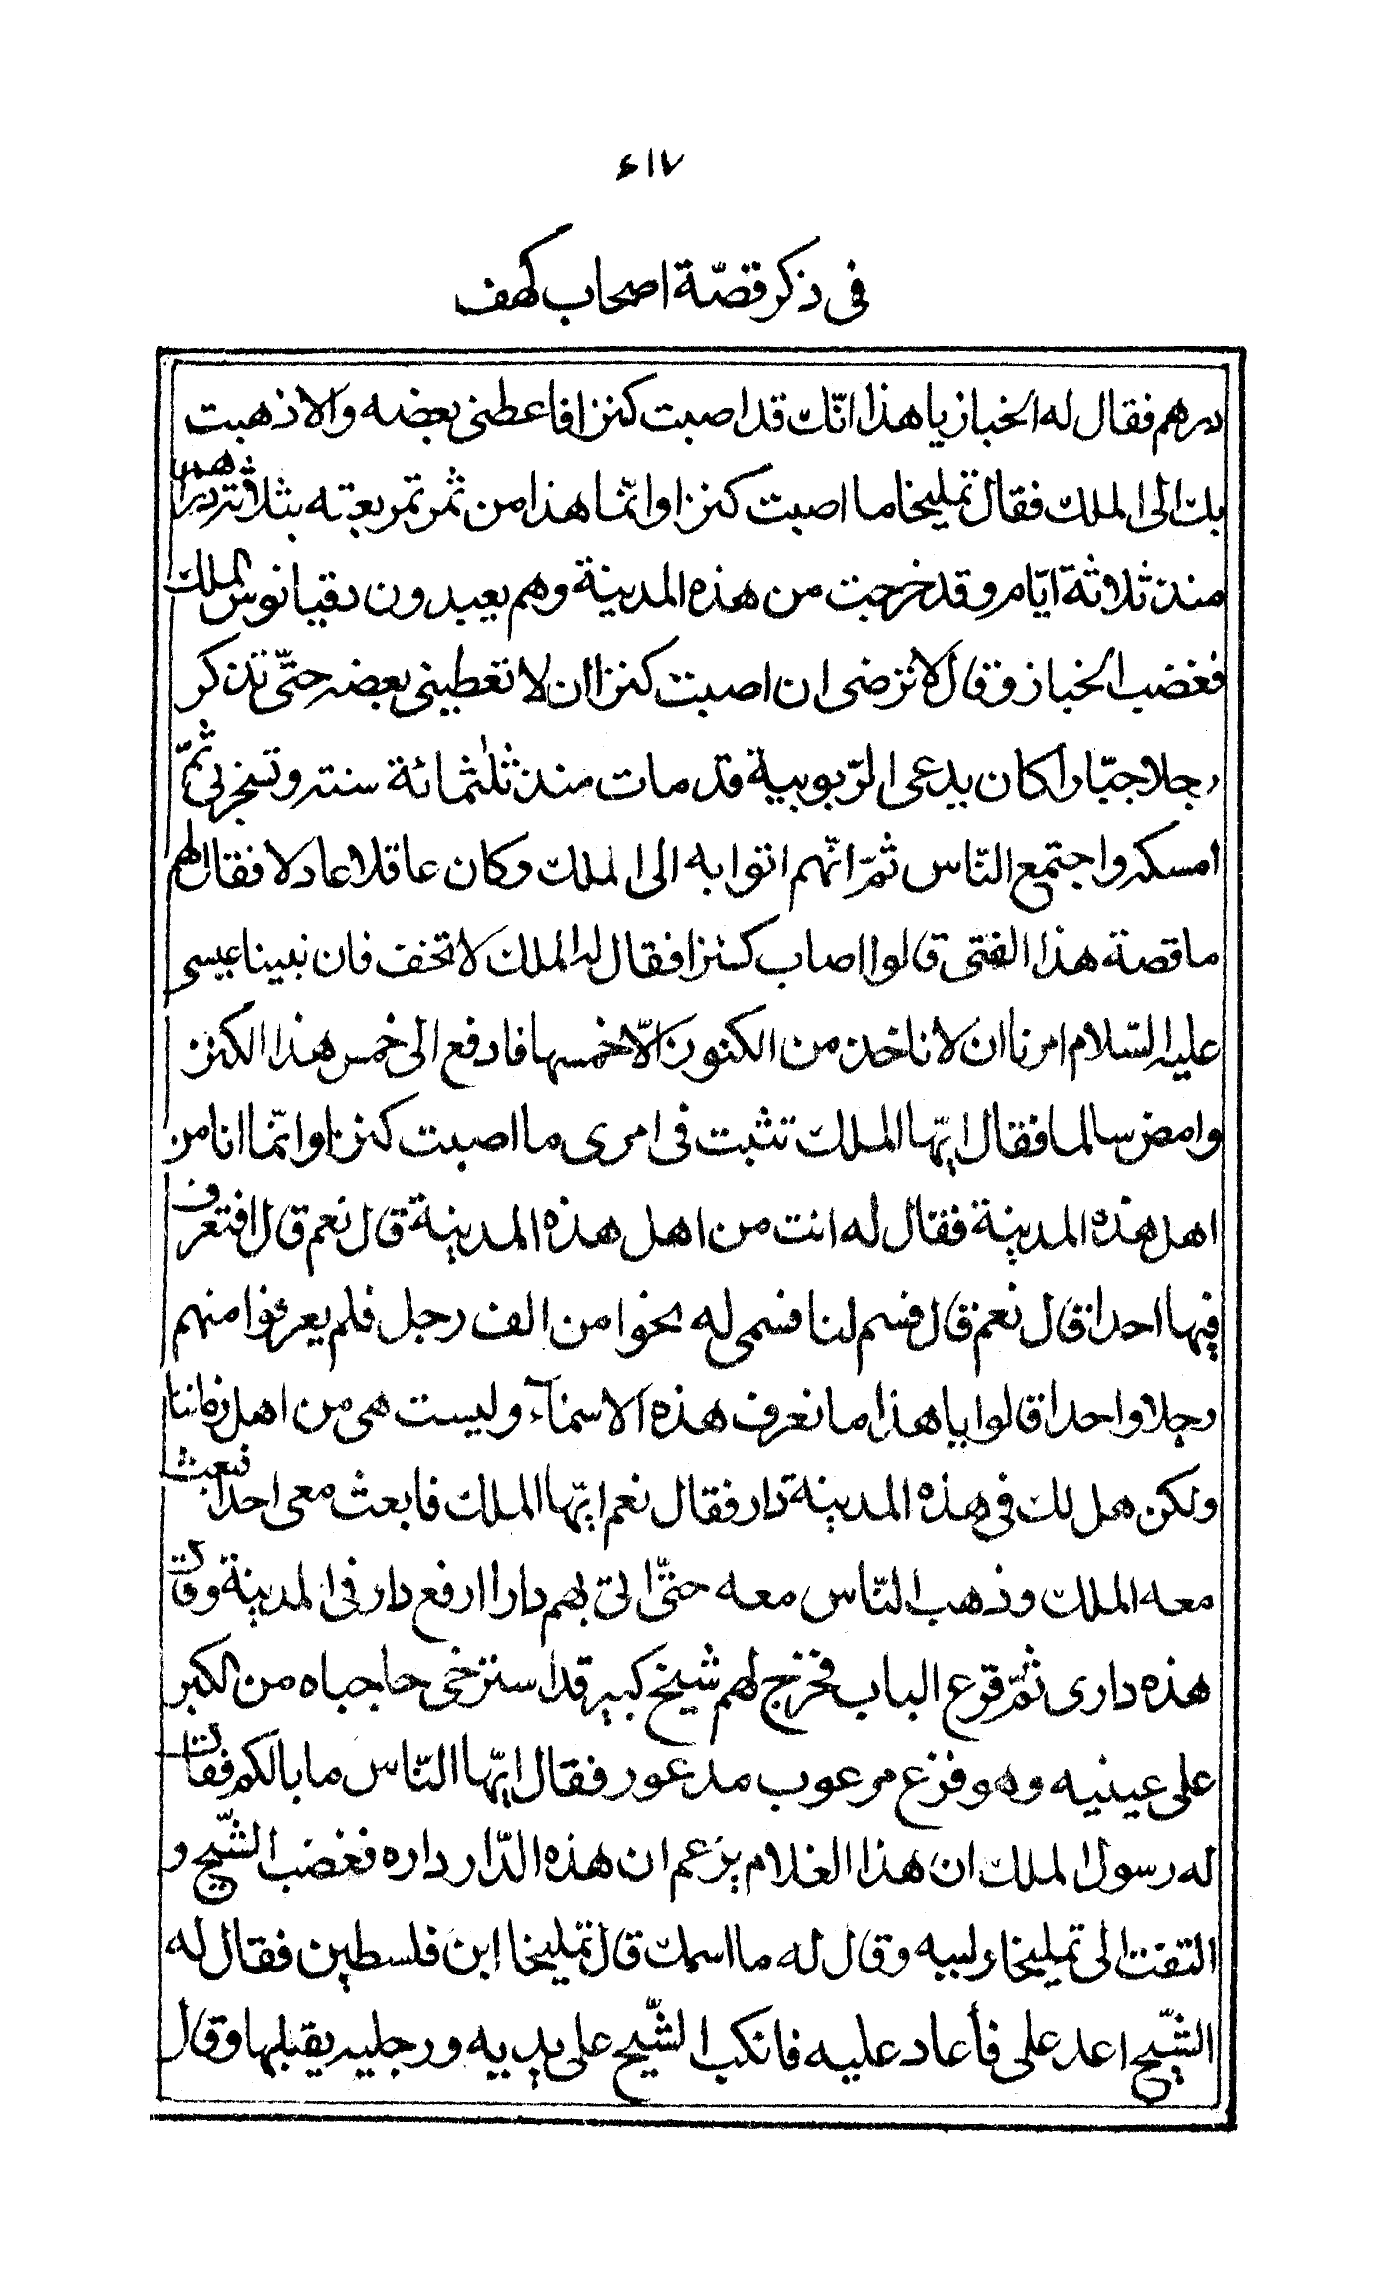 ٤١٧
فى ذكر قصّة اصحاب كهف
درهم فقال له الخباز يا هذا انّك قد اصبت كنزا فاعطنى بعضه والا ذهبت
بك الى الملك فقال تمليخا ما اصبت كنزا وانّما هذا من ثمر تمر بعته بثلاثة دراهم
منذ ثلاثة ايّام وقد خرجت من هذه المدينة وهم يعبدون دقيانوس الملك
فغضب الخباز وقال لا ترضى ان اصبت كنزا ان لا تعطينى بعضه حتّى تذكر
رجلا جبّارا كان يدعى الرّبوبية قد مات منذ ثلثمائة سنة وتسخر بى ثمّ
امسكه واجتمع النّاس ثمّ انّهم اتوا به الى الملك وكان عاقلا عادلا فقال لهم
ما قصة هذا الفتى قالوا اصاب كنزا فقال له الملك لا تخف فان نبينا عيسى
عليه السّلام امرنا ان لا ناخذ من الكنوز الّا خمسها فادفع الى خمس هذا الكنز
وامض سالما فقال ايّها الملك تثبت فى امرى ما اصبت كنزا وانّما انا من
اهل هذه المدينة فقال له انت من اهل هذه المدينة قال نعم قال افتعرف
فيها احدا قال نعم قال فسم لنا فسمى له نحوا من الف رجل فلم يعرفوا منهم
رجلا واحدا قالوا يا هذا ما نعرف هذه الاسمآء وليست هى من اهل زماننا
ولكن هل لك فى هذه المدينة دار فقال نعم ايّها الملك فابعث معى احدا فبعث
معه الملك وذهب النّاس معه حتّى اتى بهم دارا ارفع دار فى المدينة وقال
هذه دارى ثمّ قرع الباب فخرج لهم شيخ كبير قد استرخى حاجباه من الكبر
على عينيه وهو فزع مرعوب مدعور فقال ايّها النّاس ما بالكم فقال
له رسول الملك ان هذا الغلام يزعم ان هذه الدّار داره فغضب الشّيخ و
التفت الى تمليخا وقال له ما اسمك قال تمليخا ابن فلسطين فقال له
الشّيخ اعد على فأعاد عليه فانكب الشّيخ على يديه ورجليه يقبلها وقال